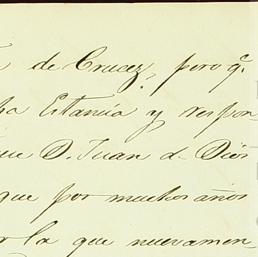 de Cruces, pero q.e
Estancia y respon-
que D. Juan d- Dios
que por muchos años
r la que nuevamen-